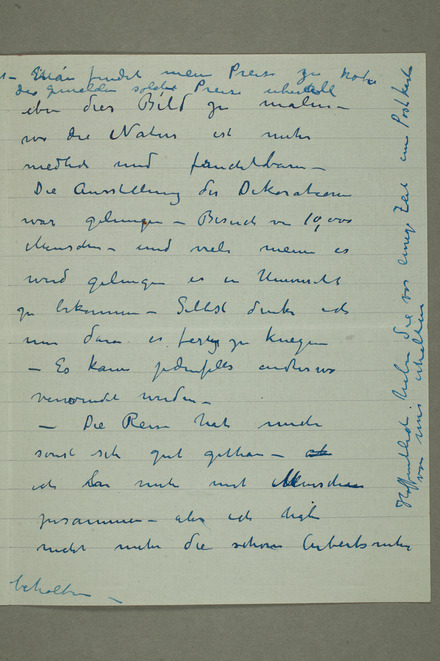 Man findet meine Preise zu hohe
die gemalden solche Preise uberall
eben dies Bild zu malen –
wo die Natur ist mehr
und fruchtbarn –
Die Ausstellung der Dekorationen
war gelungen – Besuch von 10,000
Menschen – und viele meinen es
wird gelungen es in
zu bekommen – Selbst denke ich
nur daran es fertig zu kriegen
– Es kann jedenfalls anderswo
verwendet werden –
– Die Reise hat mich
sonst sehr gut gethan –
ich bin nicht mit Menschen
zusammen – aber ich
nicht mehr die schöne Arbeitsruhe
behalten –
Hoffentlich haben Sie vor einige Zeit eine Postkarte
von mir erhalten